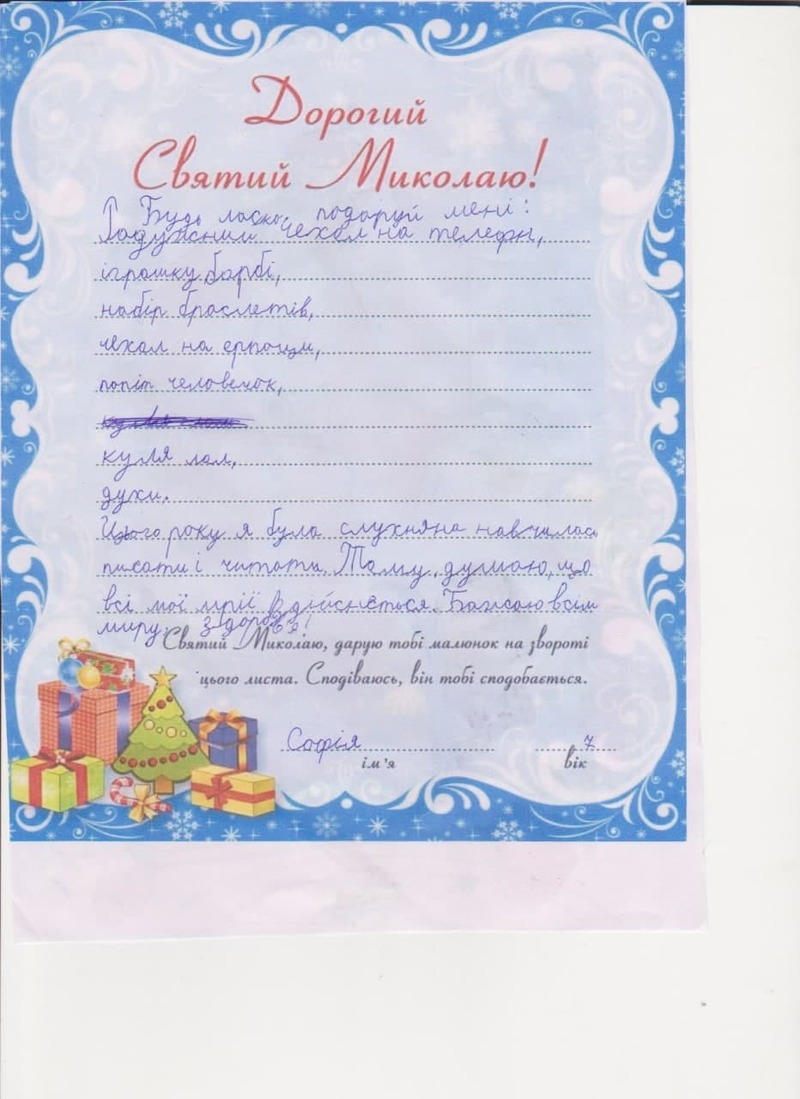 Дорогий
Святий Миколаю!
Будь ласка, подаруй мені:
Радужний чехол на телефн,
іграшку барбі,
набір браслетів,
чехол на ерпоцм,
попіт человечок,
куля лол,
духи.
Цього року я була слухняна навчилась
писати і читати. Тому думаю, що
всі мої мрії здійснється. Бажаю всім
миру. здоровя!
Святий Миколаю, дарую тобі малюнок на звороті
цього листа. Сподіваюсь, він тобі сподобається.
Софія 7
ім'я вік